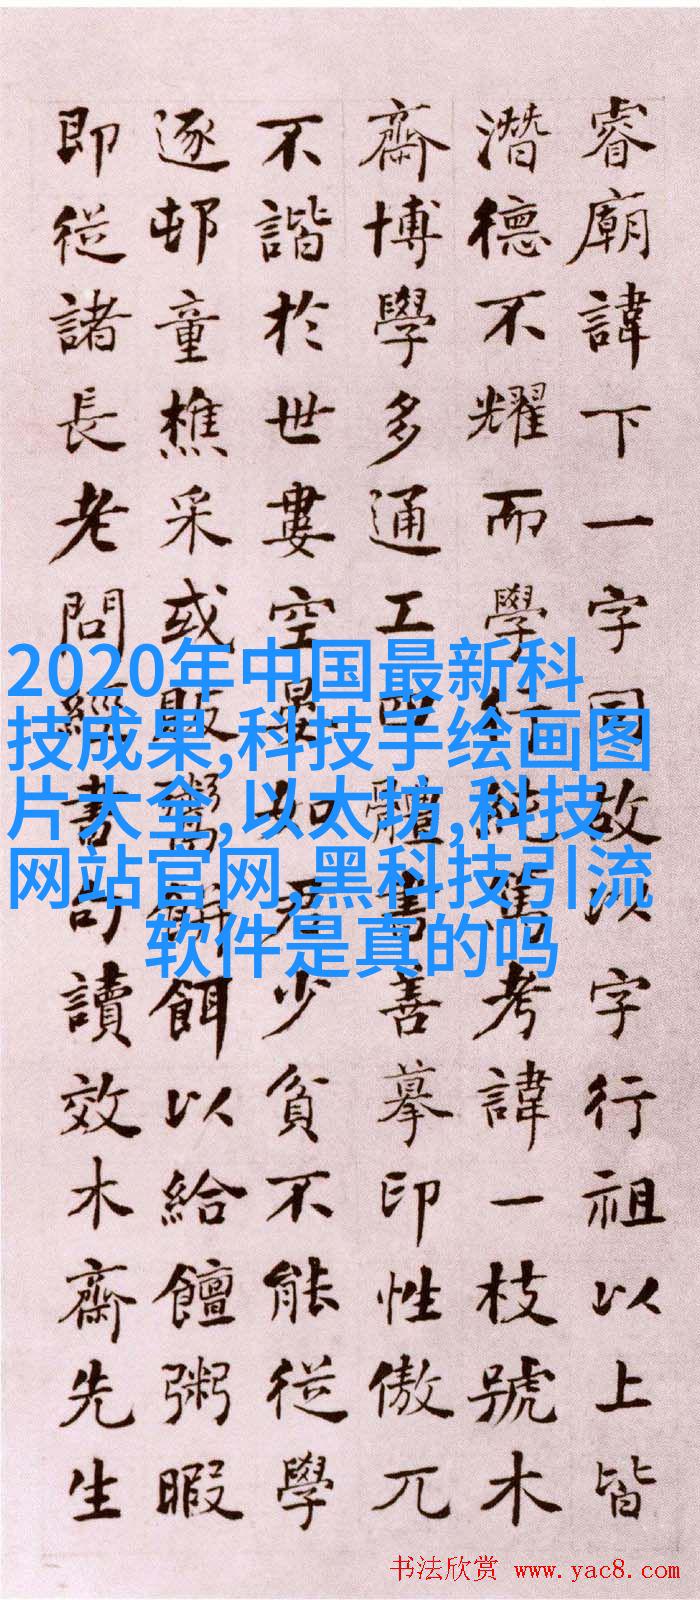 睿廟諱下一字同故以字行祖以上皆
潛德不耀而學行純篤考諱一枝號木
齋博學多通工四體善摹印性傲兀
不諧於世婁空晏如君少貧不能從學
逐邨童樵采或販鬻餅餌以給饘粥暇
即從諸長老問經書句讀效木齋先生
2020年中国最新科
技成果,科技手绘画图
片大全,以太坊,科技
网站官网,黑科技引流
软件是真的吗
书法欣赏 www.yac8.com